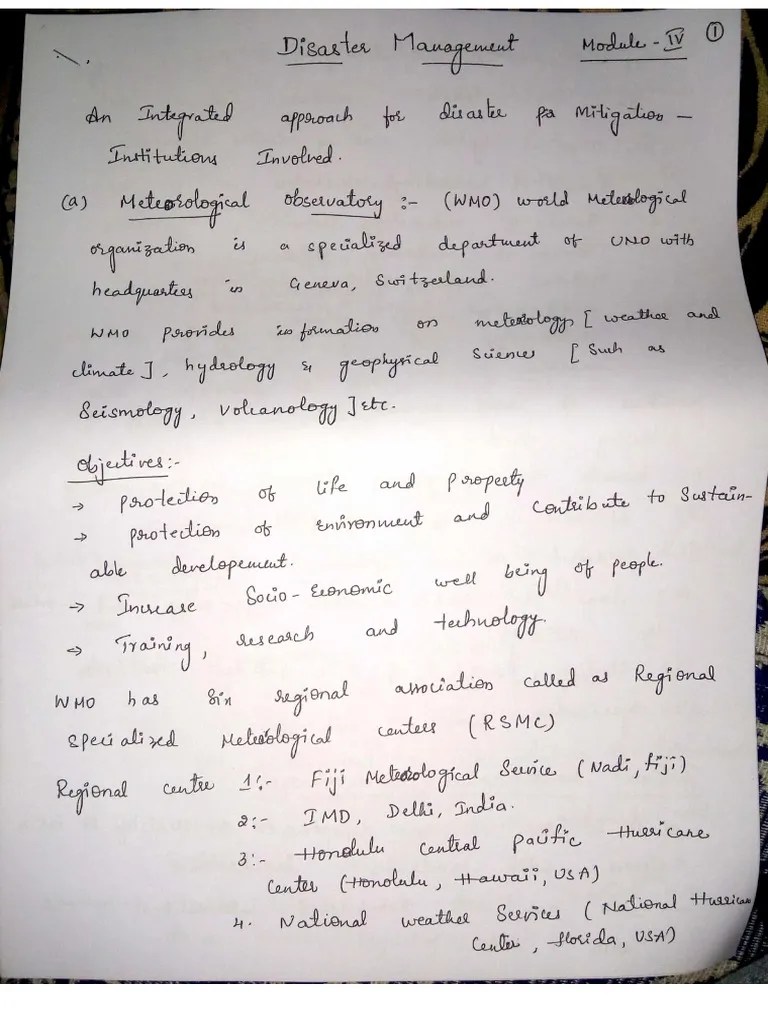 Disaster Management Module - IV 1
An Integrated approach for disaster Mitigation -
Institutions Involved.
(a) Meteorological Observatory :- (WMO) world Meteorological
organization is a specialized department of UNO with
headquarters in Geneva, Switzerland.
WMO provides information on meteorology [ weather and
climate ], hydrology & geophysical Science [ Such as
Seismology, Volcanology ] etc.
Objectives:-
→ protection of life and property
→ protection of Environment and contribute to Sustain-
able developement.
→ Increase Socio-Economic well being of people.
→ Training, research and technology.
WMO has Six regional association called as Regional
Specialized Meteorological centers (RSMC)
Regional centre 1:- Fiji Meteorological Service (Nadi, fiji)
2:- IMD, Delhi, India.
3:- Honolulu central pacific Hurricane
Center (Honolulu, Hawaii, USA)
4. National weather Services (National Hurrican
Center, florida, USA)